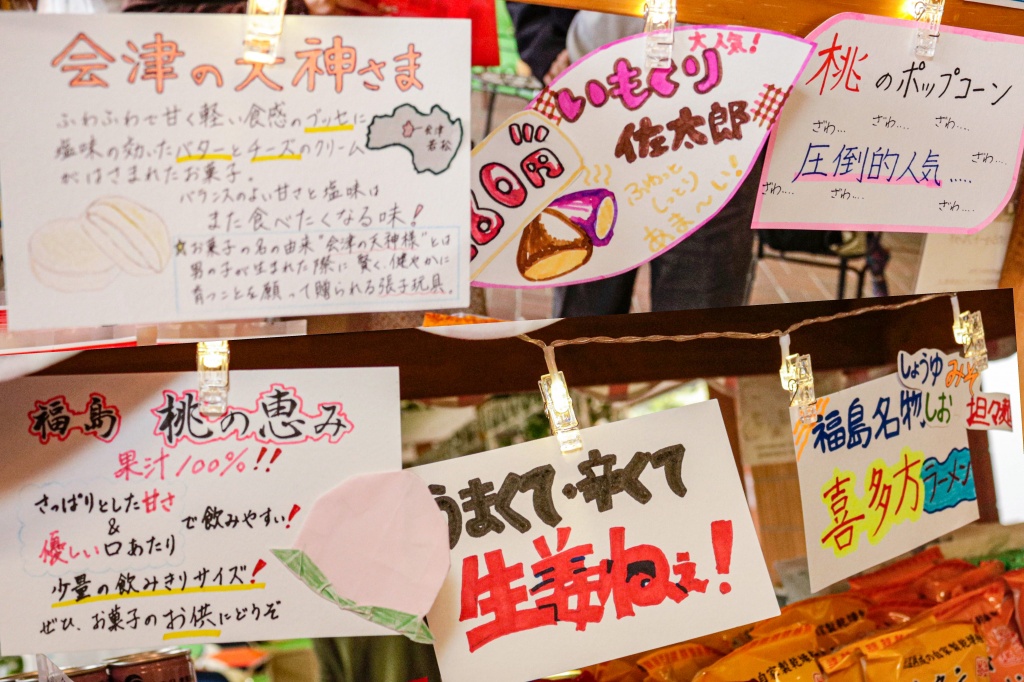 会津の天神さま
ふわふわで甘く軽い食感のブッセに
塩味の効いたバターとチーズのクリーム
がはさまれたお菓子。
バランスのよい甘さと塩味は
また食べたくなる味！
☆お菓子の名の由来"会津の天神様"とは
男の子が生まれた際に賢く、健やかに
育つことを願って贈られる張子玩具。
会津
若松
大人気！
いもくり
佐太郎
80円
ふわっと
しっとり
あま〜い！
桃のポップコーン
ざわ… ざわ… ざわ…
圧倒的人気…..
ざわ…
ざわ… ざわ… ざわ…
福島 桃の恵み
果汁100%!!
さっぱりとした甘さ
&
優しい口あたり
で飲みやすい！
少量の飲みきりサイズ！
ぜひ、お菓子のお供にどうぞ
うまくて・辛くて
生姜ねぇ！
しょうゆ
みそ
しお
担々麺
福島名物
喜多方
ラーメン